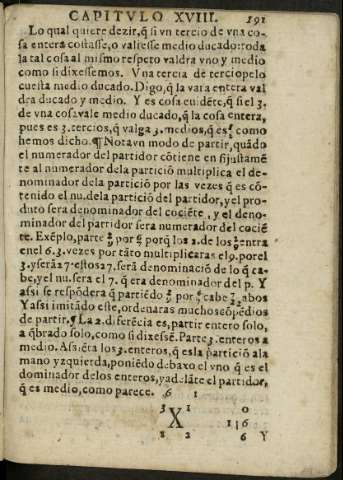 CAPITVLO XVIII. 191
Lo qual quiere dezir, q̃ si vn tercio de vna co-
sa entera costasse, o valiesse medio ducado: toda
la tal cosa al mismo respeto valdra vno y medio
como si dixessemos. Vna tercia de terciopelo
cuesta medio ducado. Digo, q̃ la vara entera val
dra ducado y medio. Y es cosa euidẽte, q̃ si el 3.
de vna cosa vale medio ducado, q̃ la cosa entera,
pues es 3. tercios, q̃ valga 3. medios, q̃ es como
hemos dicho. ¶ Nota vn modo de partir, quãdo
el numerador del partidor cõtiene en si justamẽ
te al numerador dela particiõ multiplica el de-
nominador dela particiõ por las vezes q̃ es cõ-
tenido el nu. dela particiõ del partidor, y el pro-
duto sera denominador del cociẽte, y el deno-
minador del partidor sera numerador del cociẽ
te. Exẽplo, parte por porq̃ los 2. de los entra
en el 6. 3. vezes por tãto multiplicaras el 9. por el
3. y serã 27. estos 27. serã denominaciõ de lo q̃ ca-
be, y el nu. sera el 7. q̃ era denominador del p. Y
assi se respõdera q̃ partiẽdo por cabe abos
Y assi imitãdo este, ordenaras muchos exẽplos
de partir. ¶ La 2. diferẽcia es, partir entero solo,
a q̃brado solo, como si dixessẽ. Parte 3. enteros a
medio. Assiẽta los 3. enteros, q̃ es la particiõ a la
mano yzquierda, poniẽdo debaxo el vno q̃ es el
dominador de los enteros, y adelãte el partidor,
q̃ es medio, como parece. 6 1
3 1 0
X 1|6
1 2 6 Y